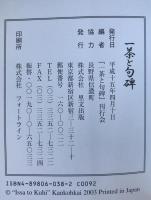 一茶と句碑
発行日 平成十五年四月十日
編者 「一茶と句碑」刊行会
協力 長野県信濃町
発行 株式会社 里文出版
東京都新宿区新宿
郵便番号 一六〇-〇〇二二
印刷所 株式会社 ウォートライン
ISBN4-89806-038-2 C0092
© "Issa to Kuhi" Kankohkai 2003 Printed in Japan